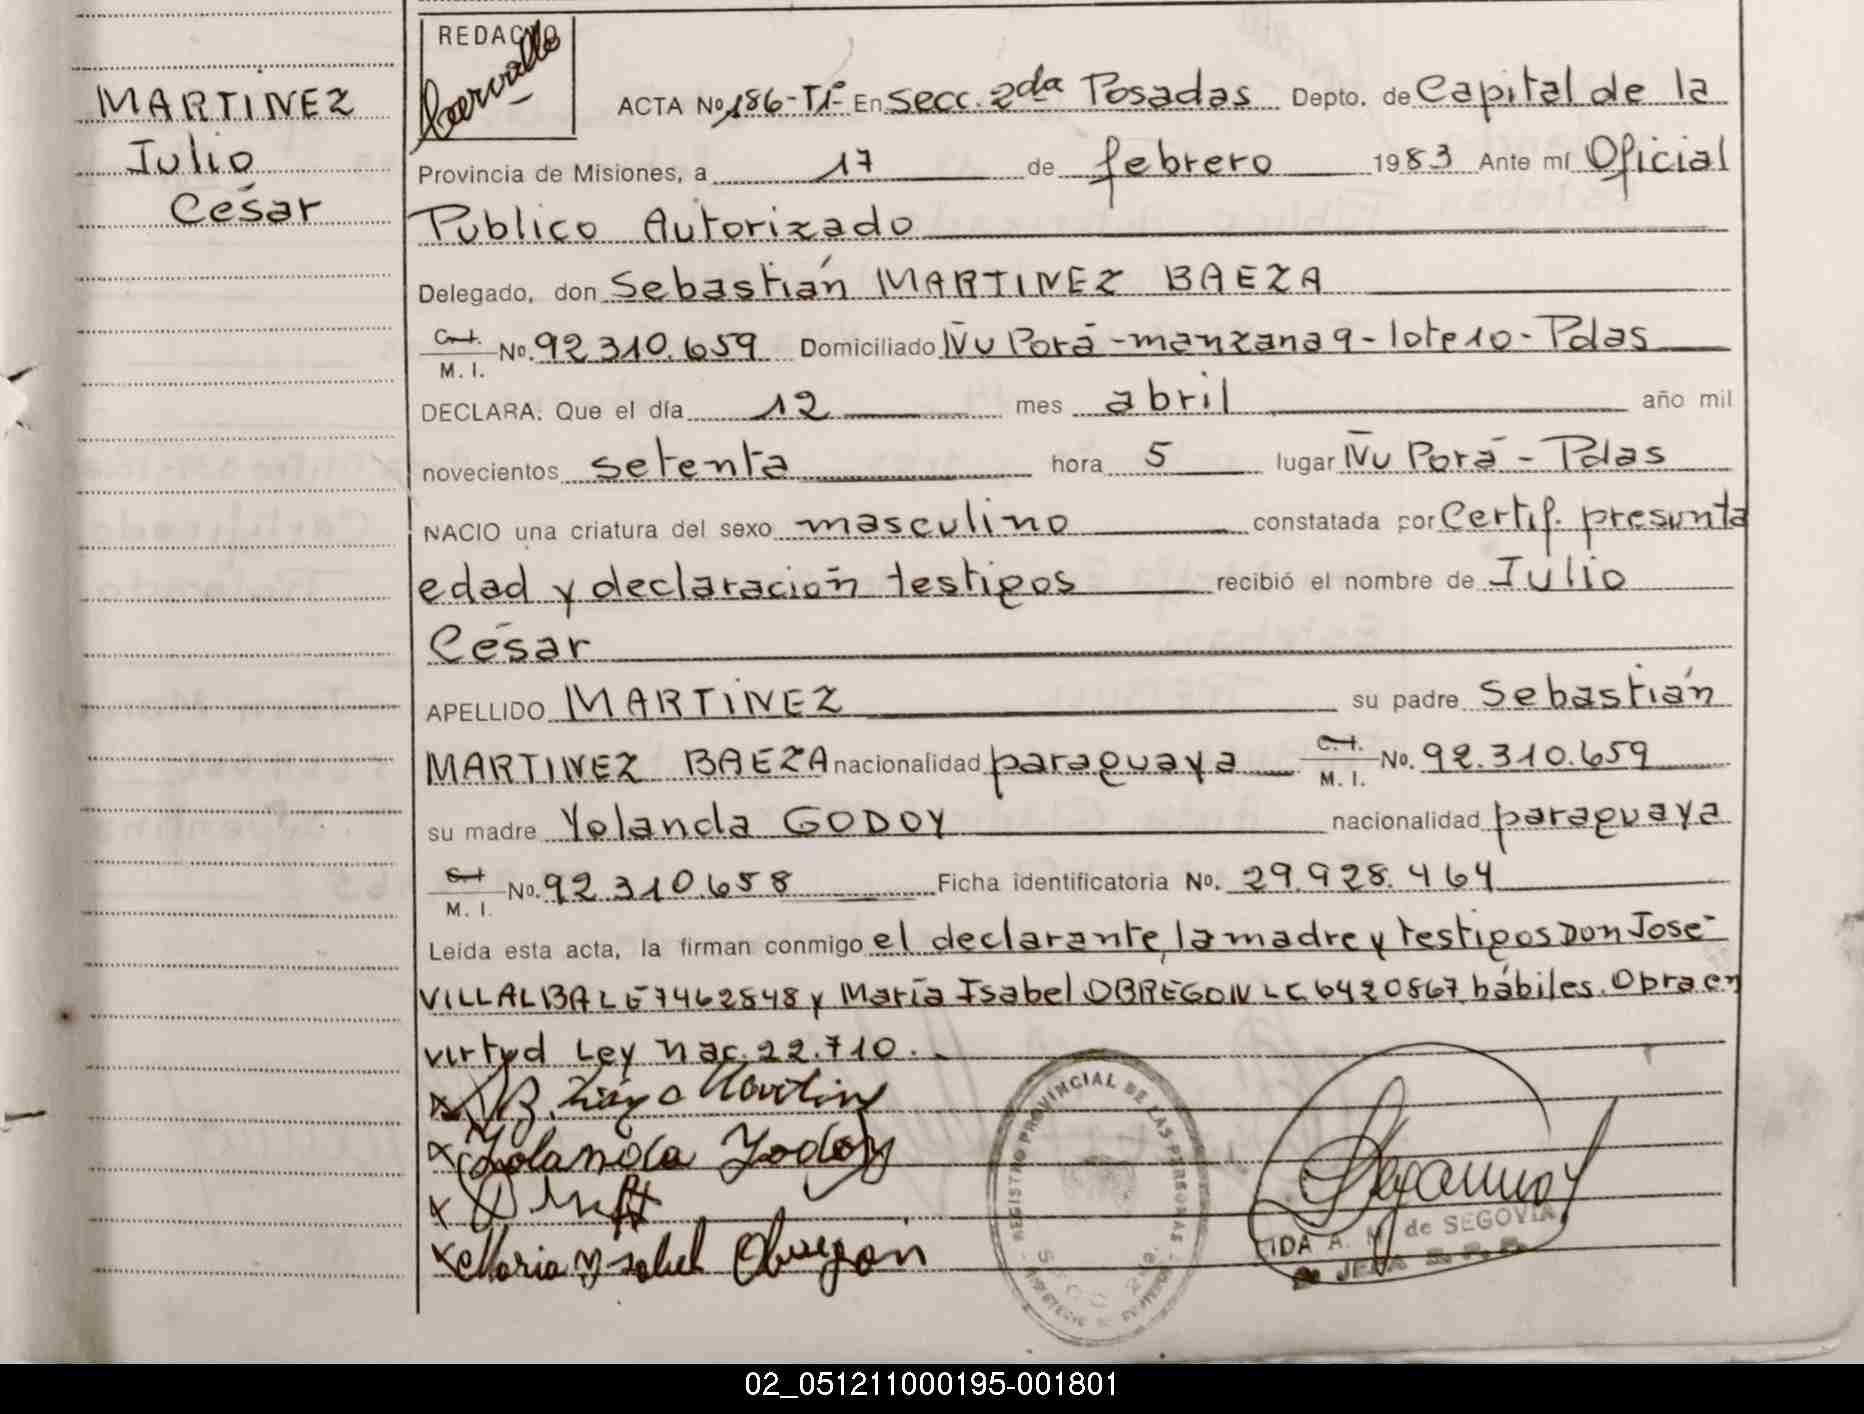 REDACTO
MARTINEZ
Julio
César
ACTA No 186-Tº1º En Secc. 2da Posadas Depto. de Capital de la
Provincia de Misiones, a 17 de febrero 1983 Ante mí Oficial
Publico Autorizado
Delegado, don Sebastián MARTINEZ BAEZA
C.I. M. I. No. 92.310.659 Domiciliado Ñu Porá - manzana 9 - lote 10 - Pdas
DECLARA: Que el día 12 mes abril año mil
novecientos setenta hora 5 lugar Ñu Porá - Pdas
NACIO una criatura del sexo masculino constatada por Certif. presunta
edad y declaración testigos recibió el nombre de Julio
César
APELLIDO MARTINEZ su padre Sebastián
MARTINEZ BAEZA nacionalidad paraguaya C.I. M. I. No. 92.310.659
su madre Yolanda GODOY nacionalidad paraguaya
C.I. M. I. No. 92.310.658 Ficha identificatoria No. 29.928.464
Leída esta acta, la firman conmigo el declarante, la madre y testigos Don José
VILLALBA LE 7462848 y María Isabel OBREGON LC 6420867 hábiles. Obra en
virtud Ley Nac. 22.710.
Yolanda Godoy
Maria Ysabel Obregon
REGISTRO PROVINCIAL DE LAS PERSONAS
IDA A. M. de SEGOVIA
02_051211000195-001801